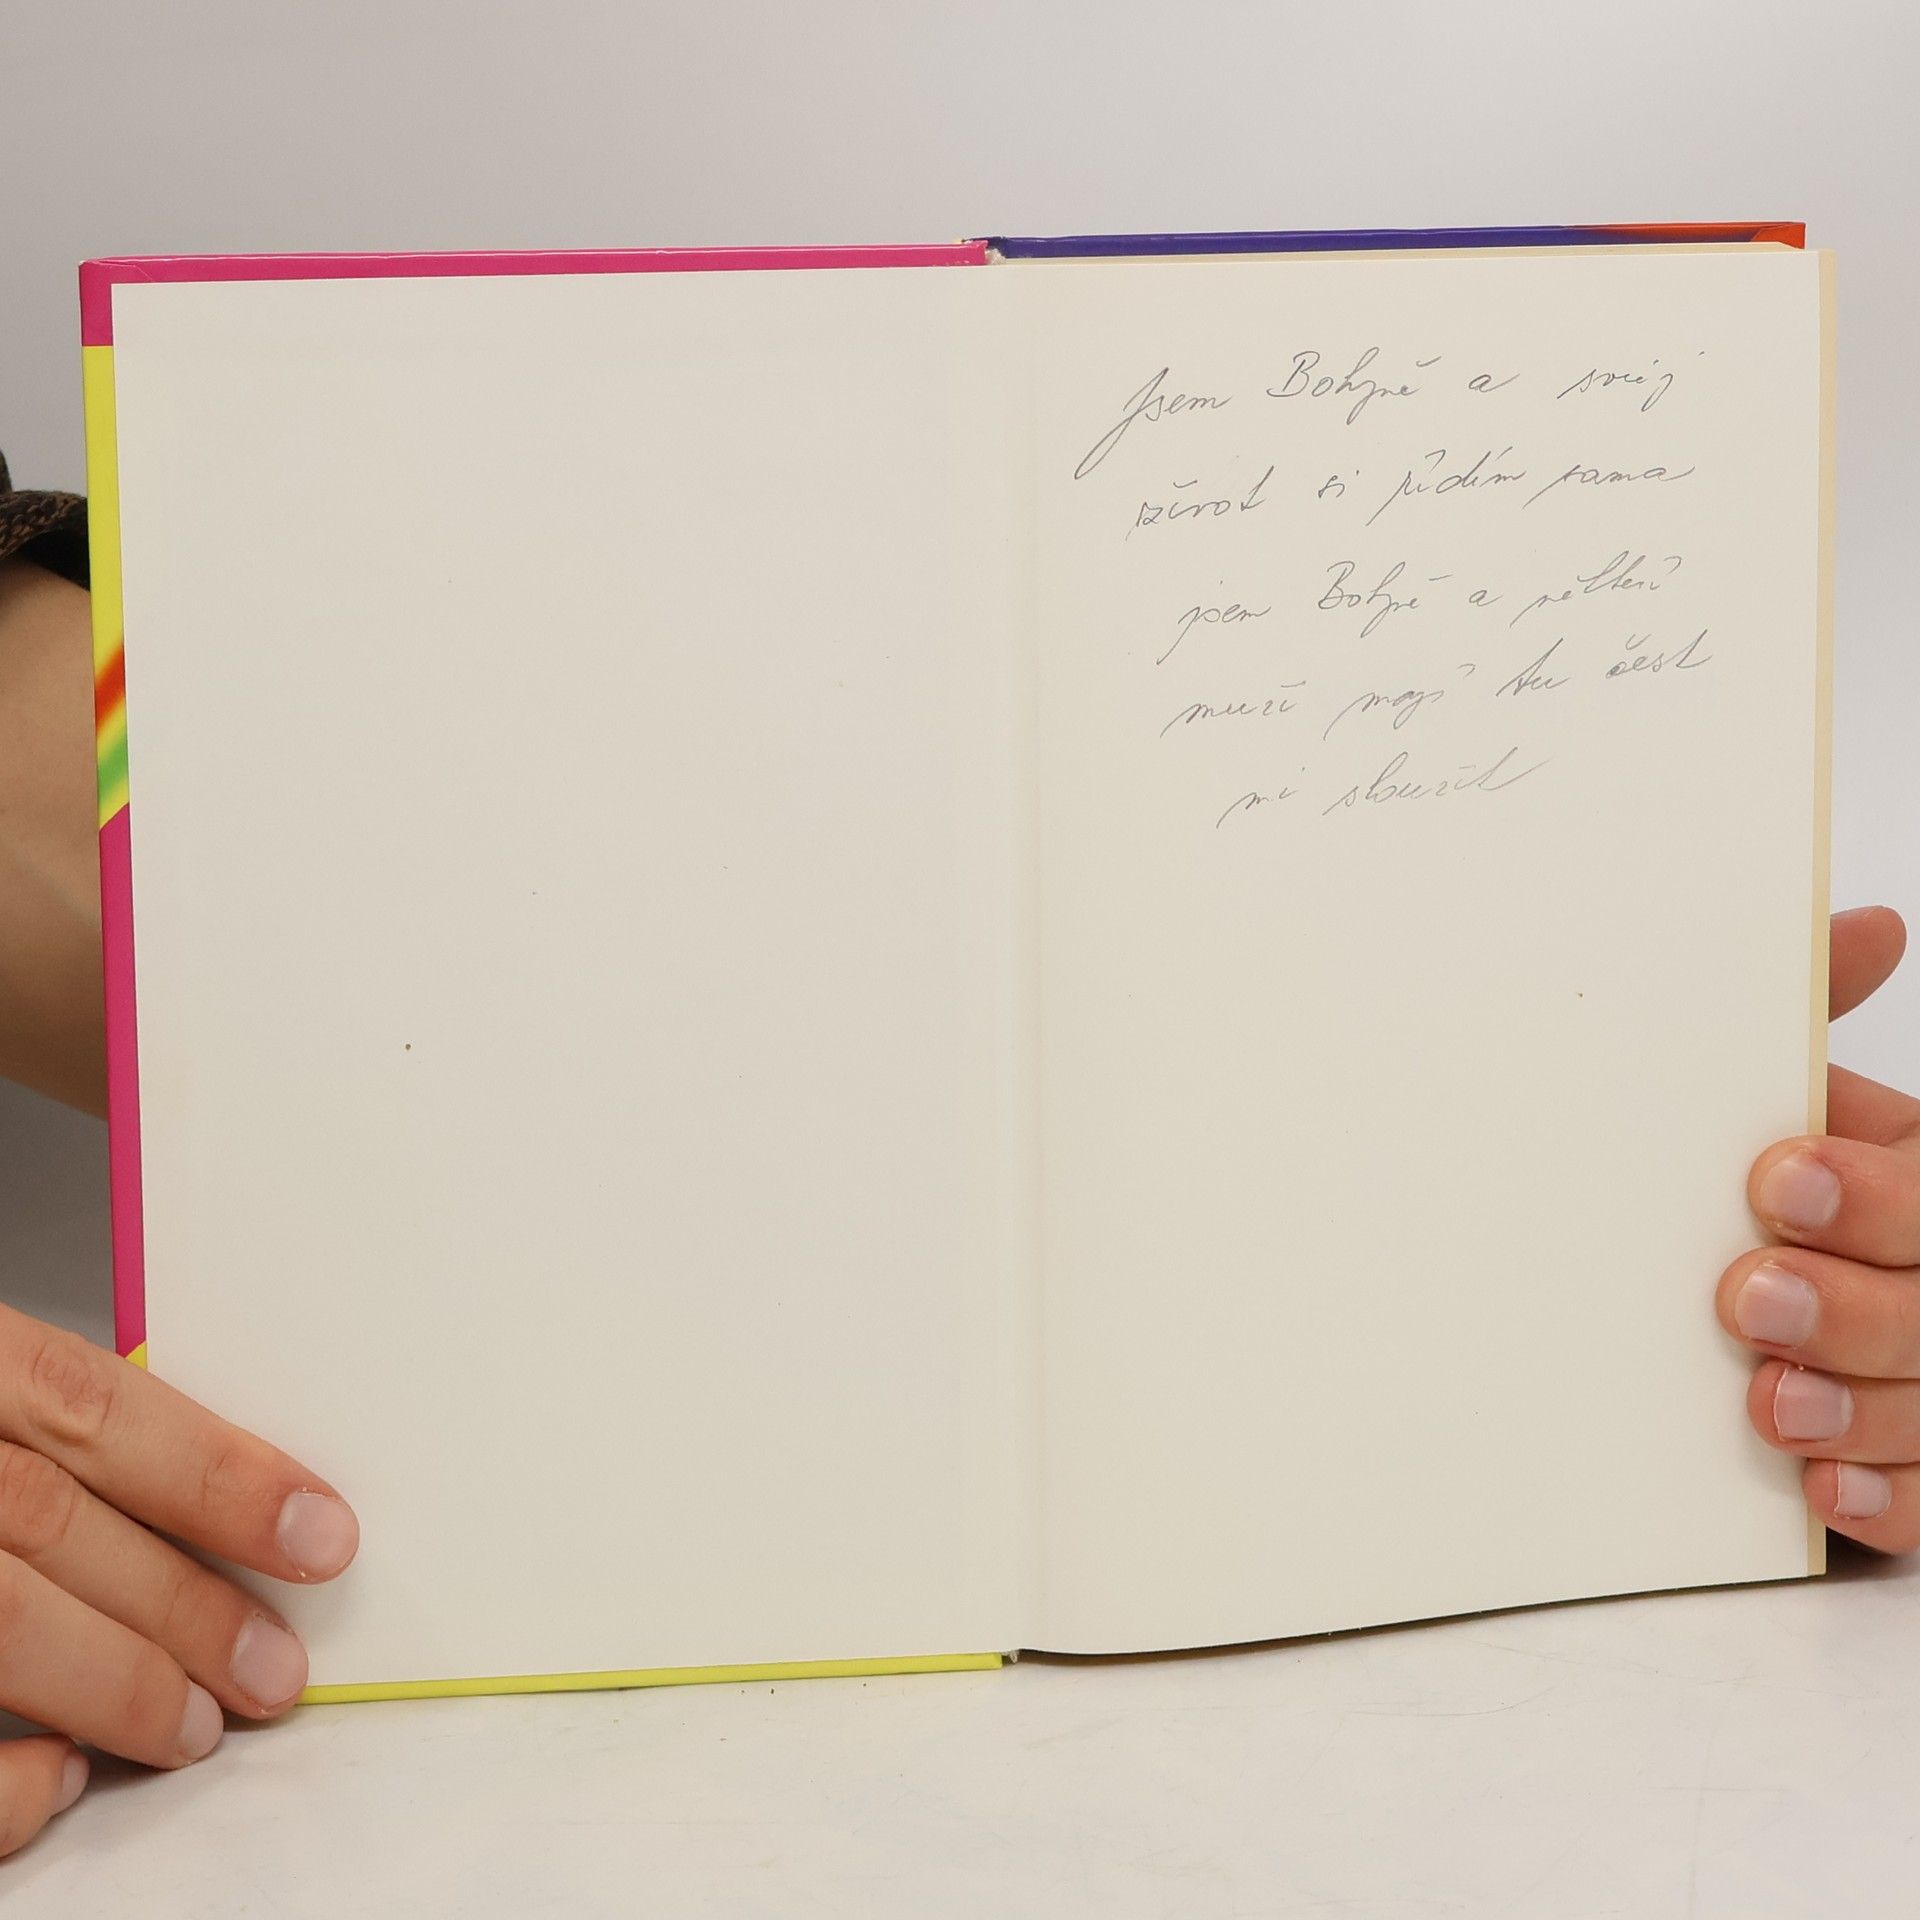 Jsem Bohyně a svůj
život si řídím sama
jsem Bohyně a někteří
muži mají tu čest
mi sloužit